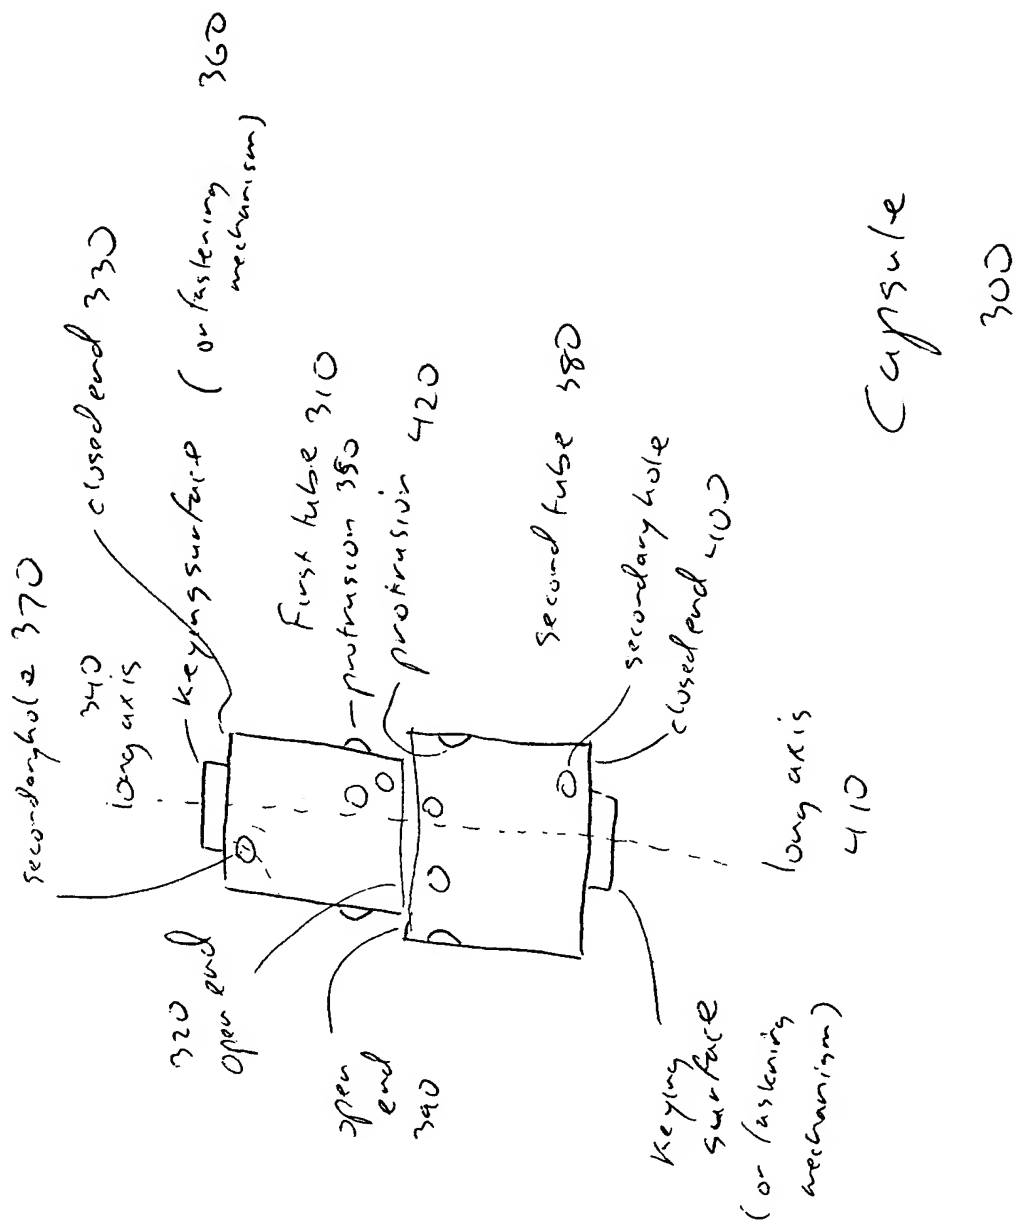 secondaryhole 370
340
long axis
keying surface (or fastening
mechanism) 360
closed end 330
First tube 310
protrusion 350
protrusion 420
second tube 380
secondary hole
closed end 400
long axis
410
320
open end
open
end
390
keying
surface
(or fastening
mechanism)
Capsule
300